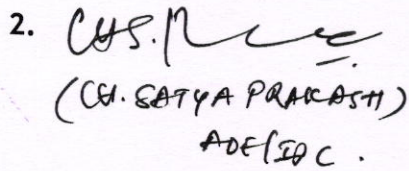 2.
(CH. SATYA PRAKASH)
ADE/IDC.